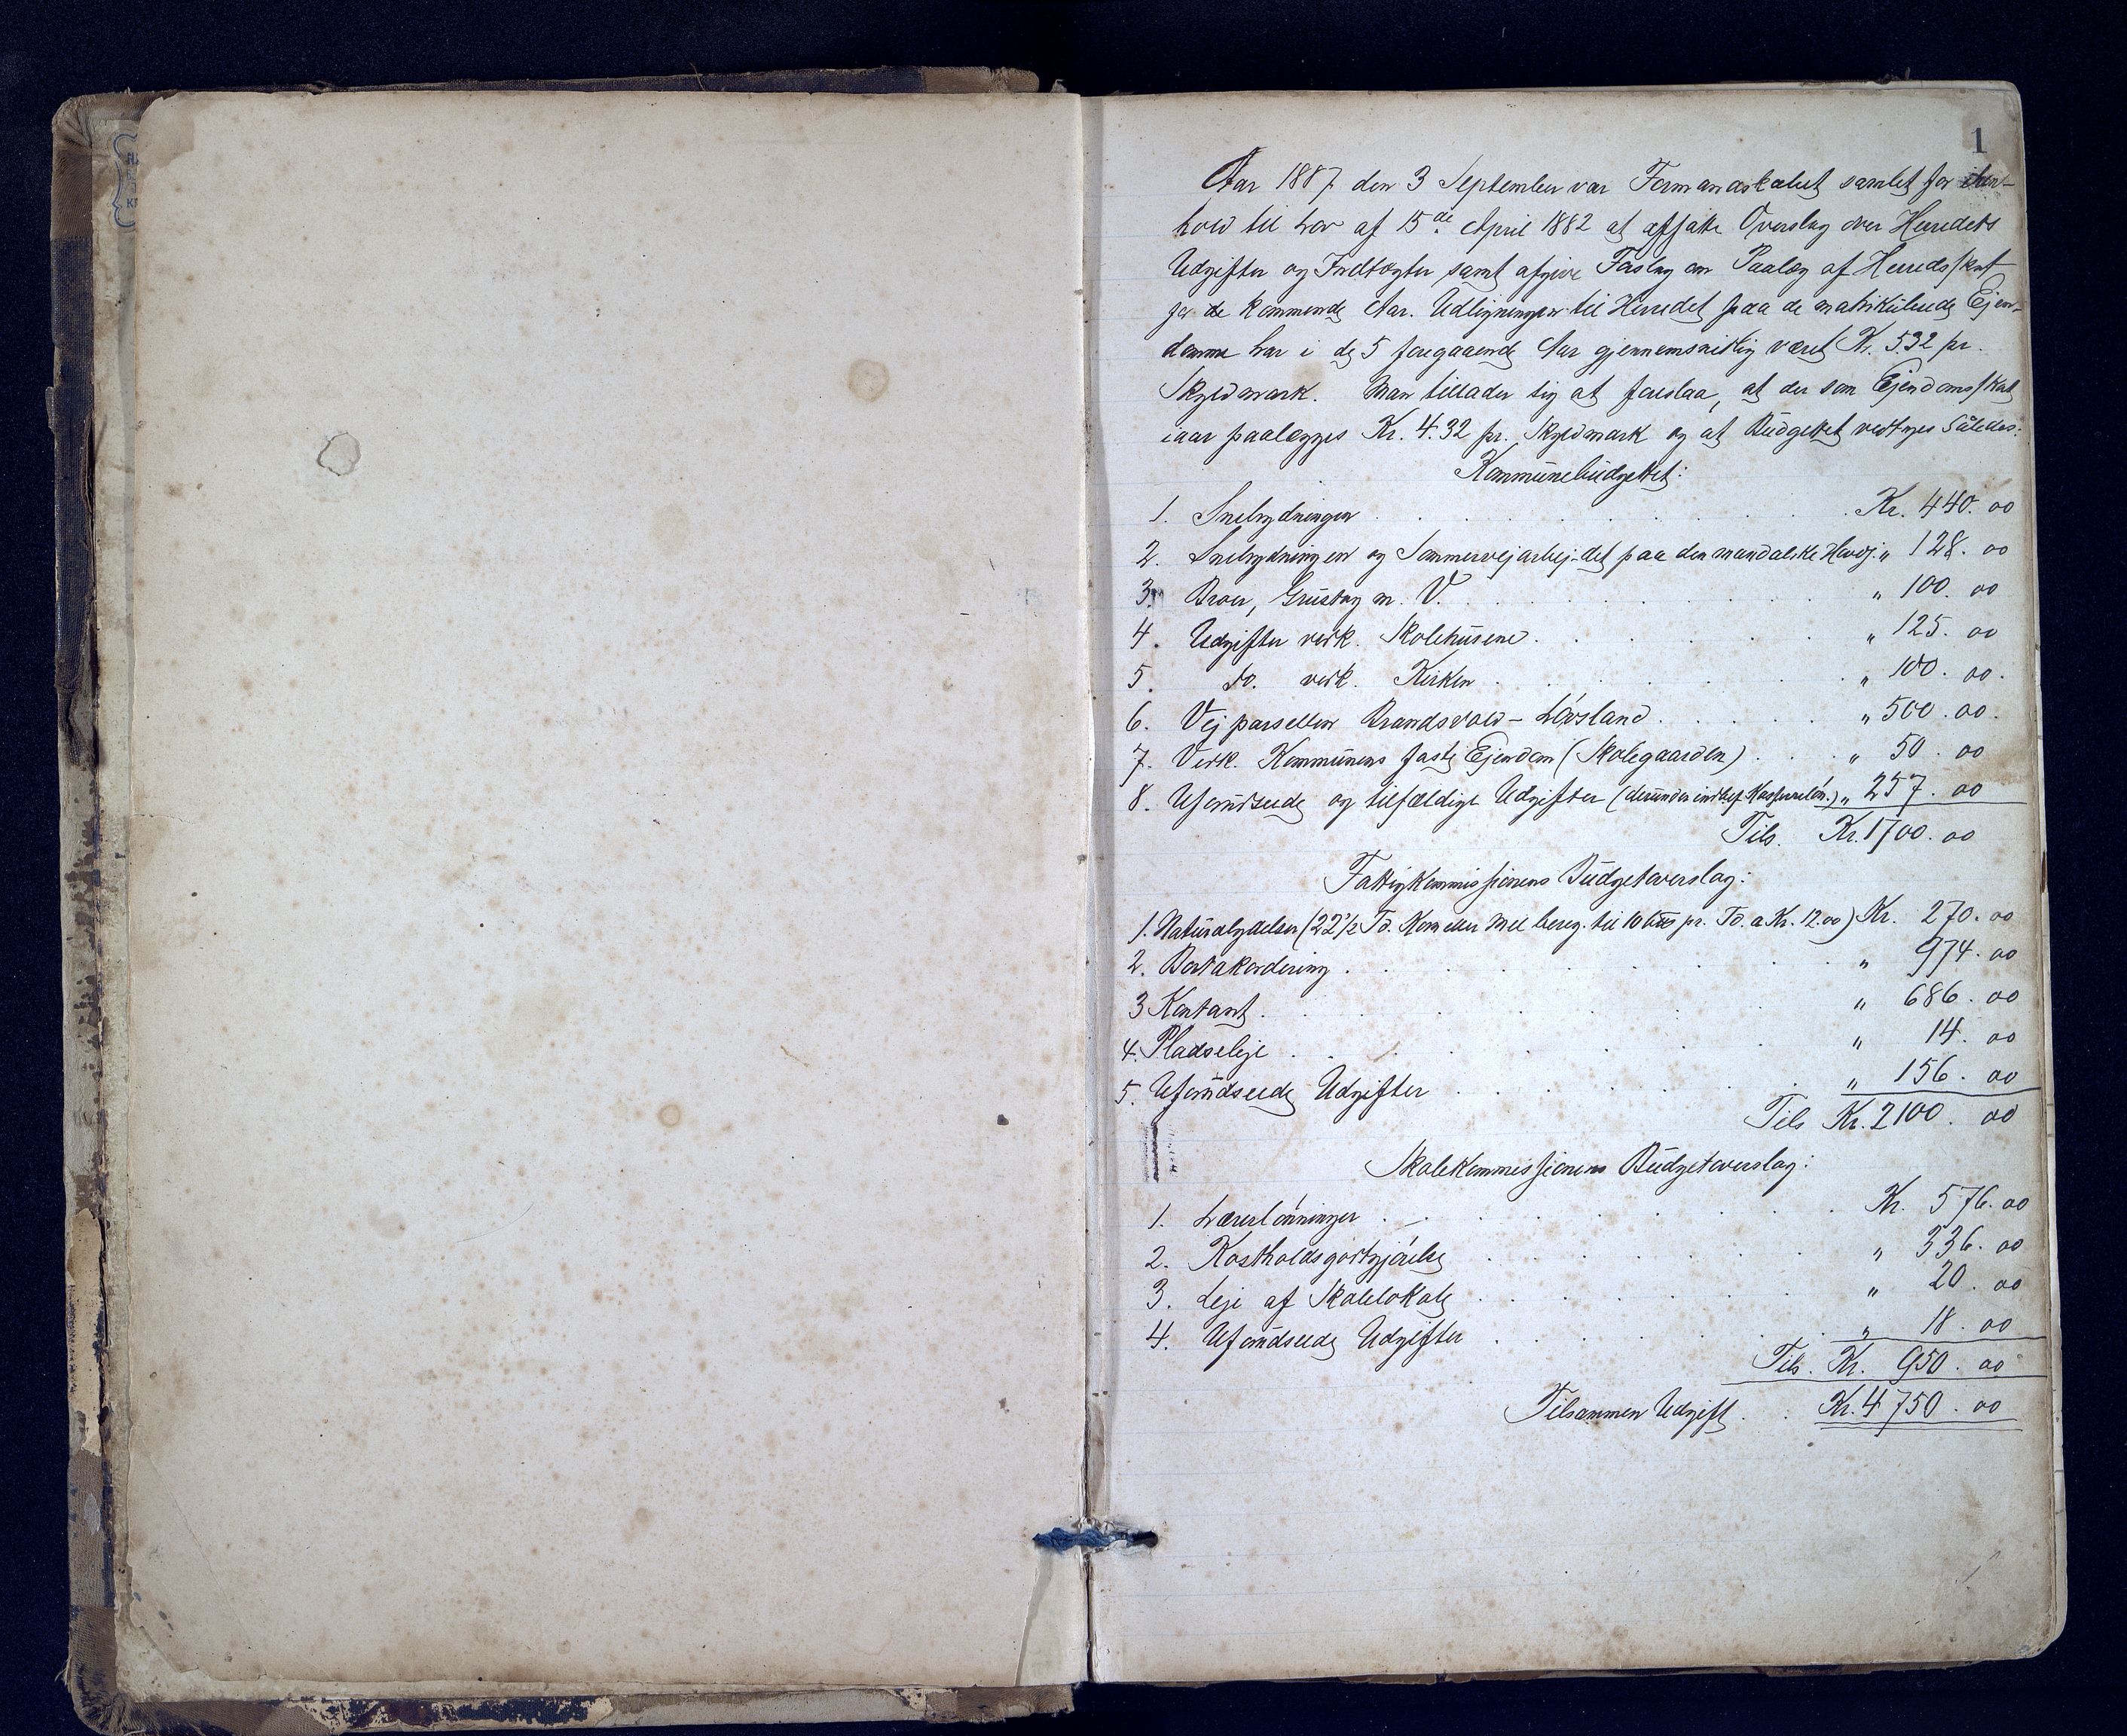 1
Aar 1887 den 3 September var Formandskabet samlet for i hen-
hold til Lov af 15de April 1882 at affatte Overslag over Herredets
Udgifter og Indtægter samt afgive Forslag om Paalæg af Herredsskat
for de kommende Aar. Udligningen til Herredet paa de matrikulerede Ejen-
domme har i de 5 foregaaende Aar gjennemsnitlig været Kr. 5.32 pr.
Skyldmark. Man tillader sig at foreslaa, at der som Ejendomsskat
iaar paalægges Kr. 4.32 pr. Skyldmark og at Budgettet vedtages Således:
Kommunebudgettet:
1. Snebrydningen . . . Kr. 440. 00
2. Snebrydningen og Sommervejarbej-det paa den mandalske Hovej. " 128. 00
3. Broer, Grustag m. V. . . . " 100. 00
4. Udgifter vedk. Skolehusene . . . " 125. 00
5. do. vedk. Kirken . . . " 100. 00.
6. Vejparsellen Brandsvold - Løvsland . . . " 500. 00.
7. Vedk. Kommunens faste Ejendom (Skolegaarden) . . . " 50. 00
8. Uforudseede og tilfældige Udgifter (derunder indbef. Kassererløn.) " 257. 00
Tils. Kr. 1700. 00
Fattigkommissionens Budgetoverslag:
1. Naturalydelser (22½ Td. Korn eller Mel bereg. til 10 pr. Td. a Kr. 12.00) Kr. 270. 00
2. Bortakordering . . . " 974. 00
3 Kontant . . . " 686. 00
4. Pladseleje . . . " 14. 00
5. Uforudseede Udgifter . . . " 156. 00
Tils Kr. 2100. 00
Skolekommissionens Budgetoverslag:
1. Lærerlønninger . . . Kr. 576. 00
2. Kostholdsgodtgjørelse . . . " 336. 00
3. Leje af Skolelokale . . . " 20. 00
4. Uforudseede Udgifter . . . " 18. 00
Tils. Kr. 950. 00
Tilsammen Udgift . . Kr. 4750. 00